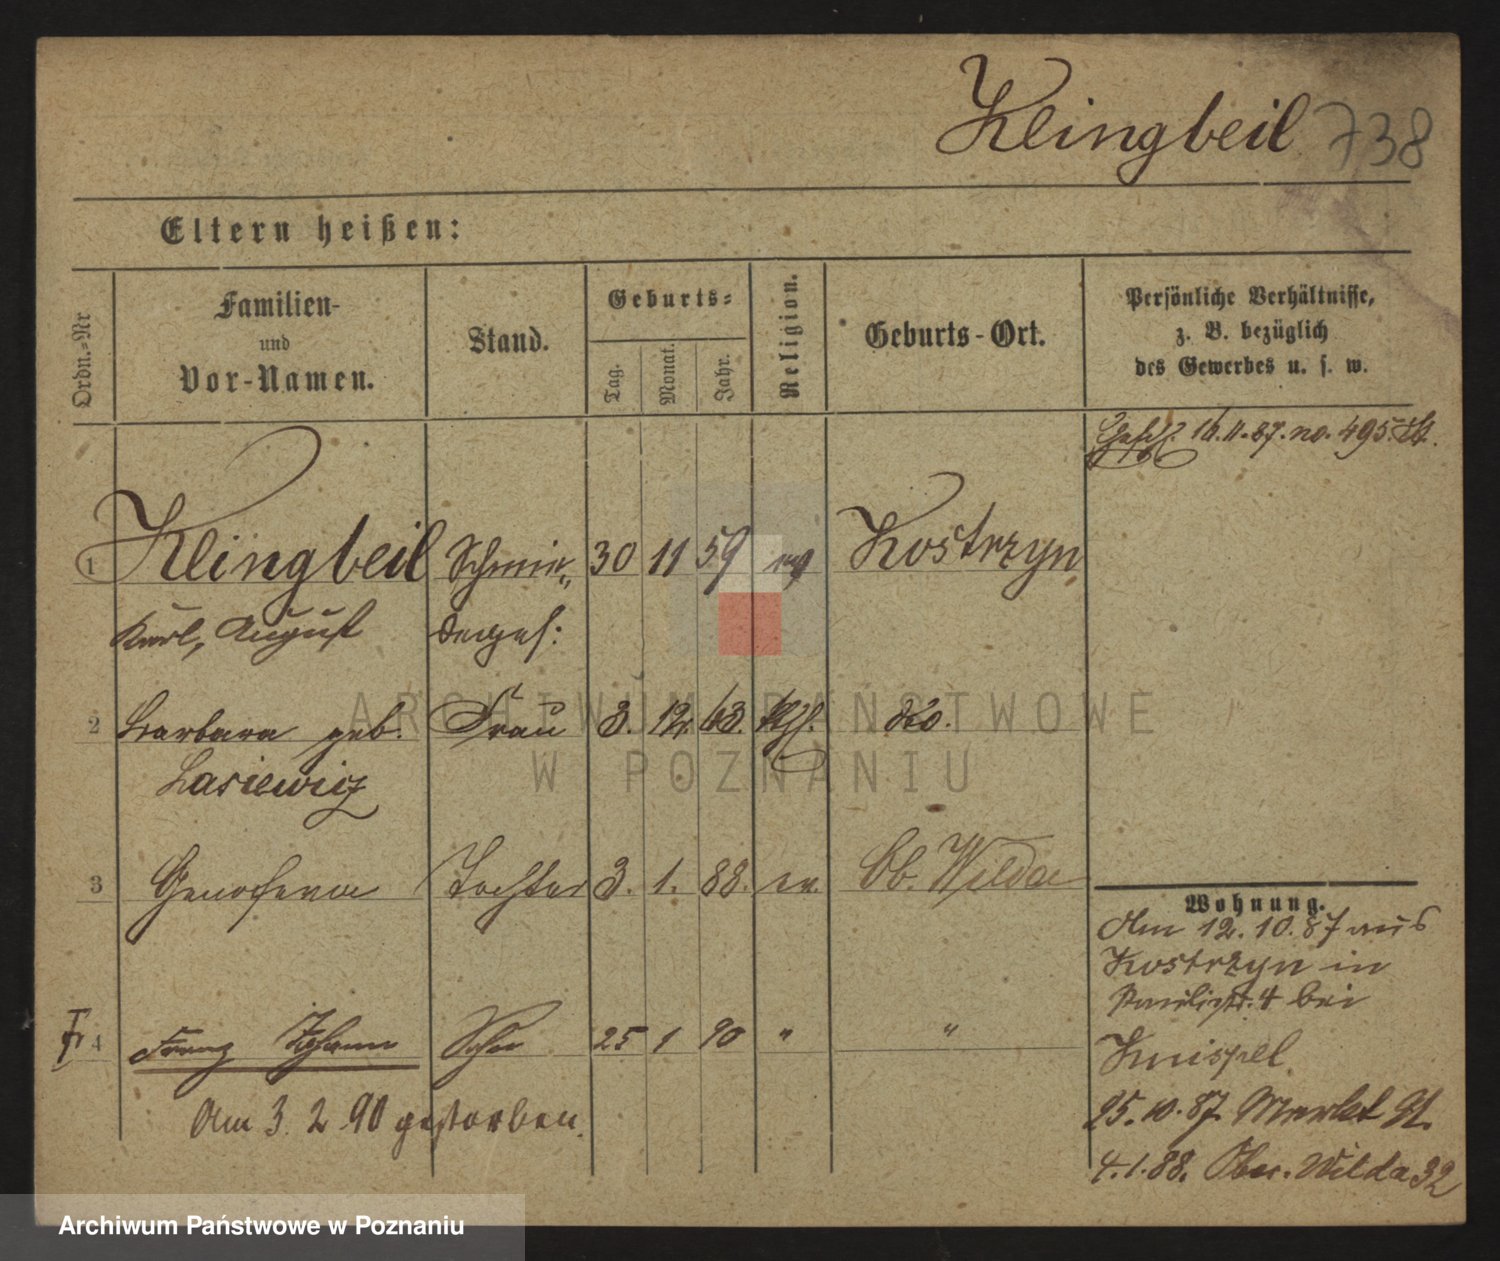 Klingbeil 738
Eltern heißen:
Ordn.-Nr
Familien-
und
Vor-Namen.
Stand.
Geburts-
Tag.
Monat.
Jahr.
Religion.
Geburts-Ort.
Persönliche Verhältnisse,
z. B. bezüglich
des Gewerbes u. s. w.
16.11.87. no. 495
1 Klingbeil Schmie- 30 11 59 ev Kostrzyn
Karl, August deges:
2 Barbara geb. Frau 3. 12. 63. kth. do.
Lasiewicz
3 Genofeva Tochter 3. 1. 88. ev. Ob. Wilda
Wohnung.
Am 12.10.87 aus
Kostrzyn in
4 bei
4 Franz Johann Sohn 25 1 90 " "
Knispel
Am 3. 2. 90 gestorben.
25.10.87. Markt 91.
4.1.88. Ober-Wilda 32
ARCHIWUM PAŃSTWOWE
W POZNANIU
Archiwum Państwowe w Poznaniu